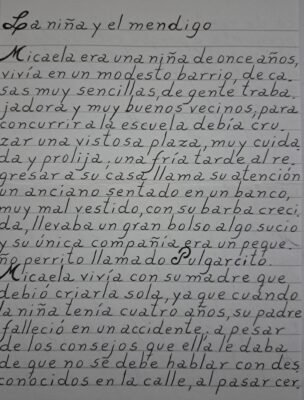 La niña y el mendigo
Micaela era una niña de once años,
vivía en un modesto barrio, de ca_
sas muy sencillas, de gente traba_
jadora y muy buenos vecinos, para
concurrir a la escuela debía cru_
zar una vistosa plaza, muy cuida_
da y prolija, una fría tarde al re_
gresar a su casa llama su atención
un anciano sentado en un banco,
muy mal vestido, con su barba creci_
da, llevaba un gran bolso algo sucio
y su única compañía era un peque_
ño perrito llamado Pulgarcito.
Micaela vivía con su madre que
debió criarla sola, ya que cuando
la niña tenía cuatro años, su padre
falleció en un accidente; a pesar
de los consejos que ella le daba
de que no se debe hablar con des_
conocidos en la calle, al pasar cer_